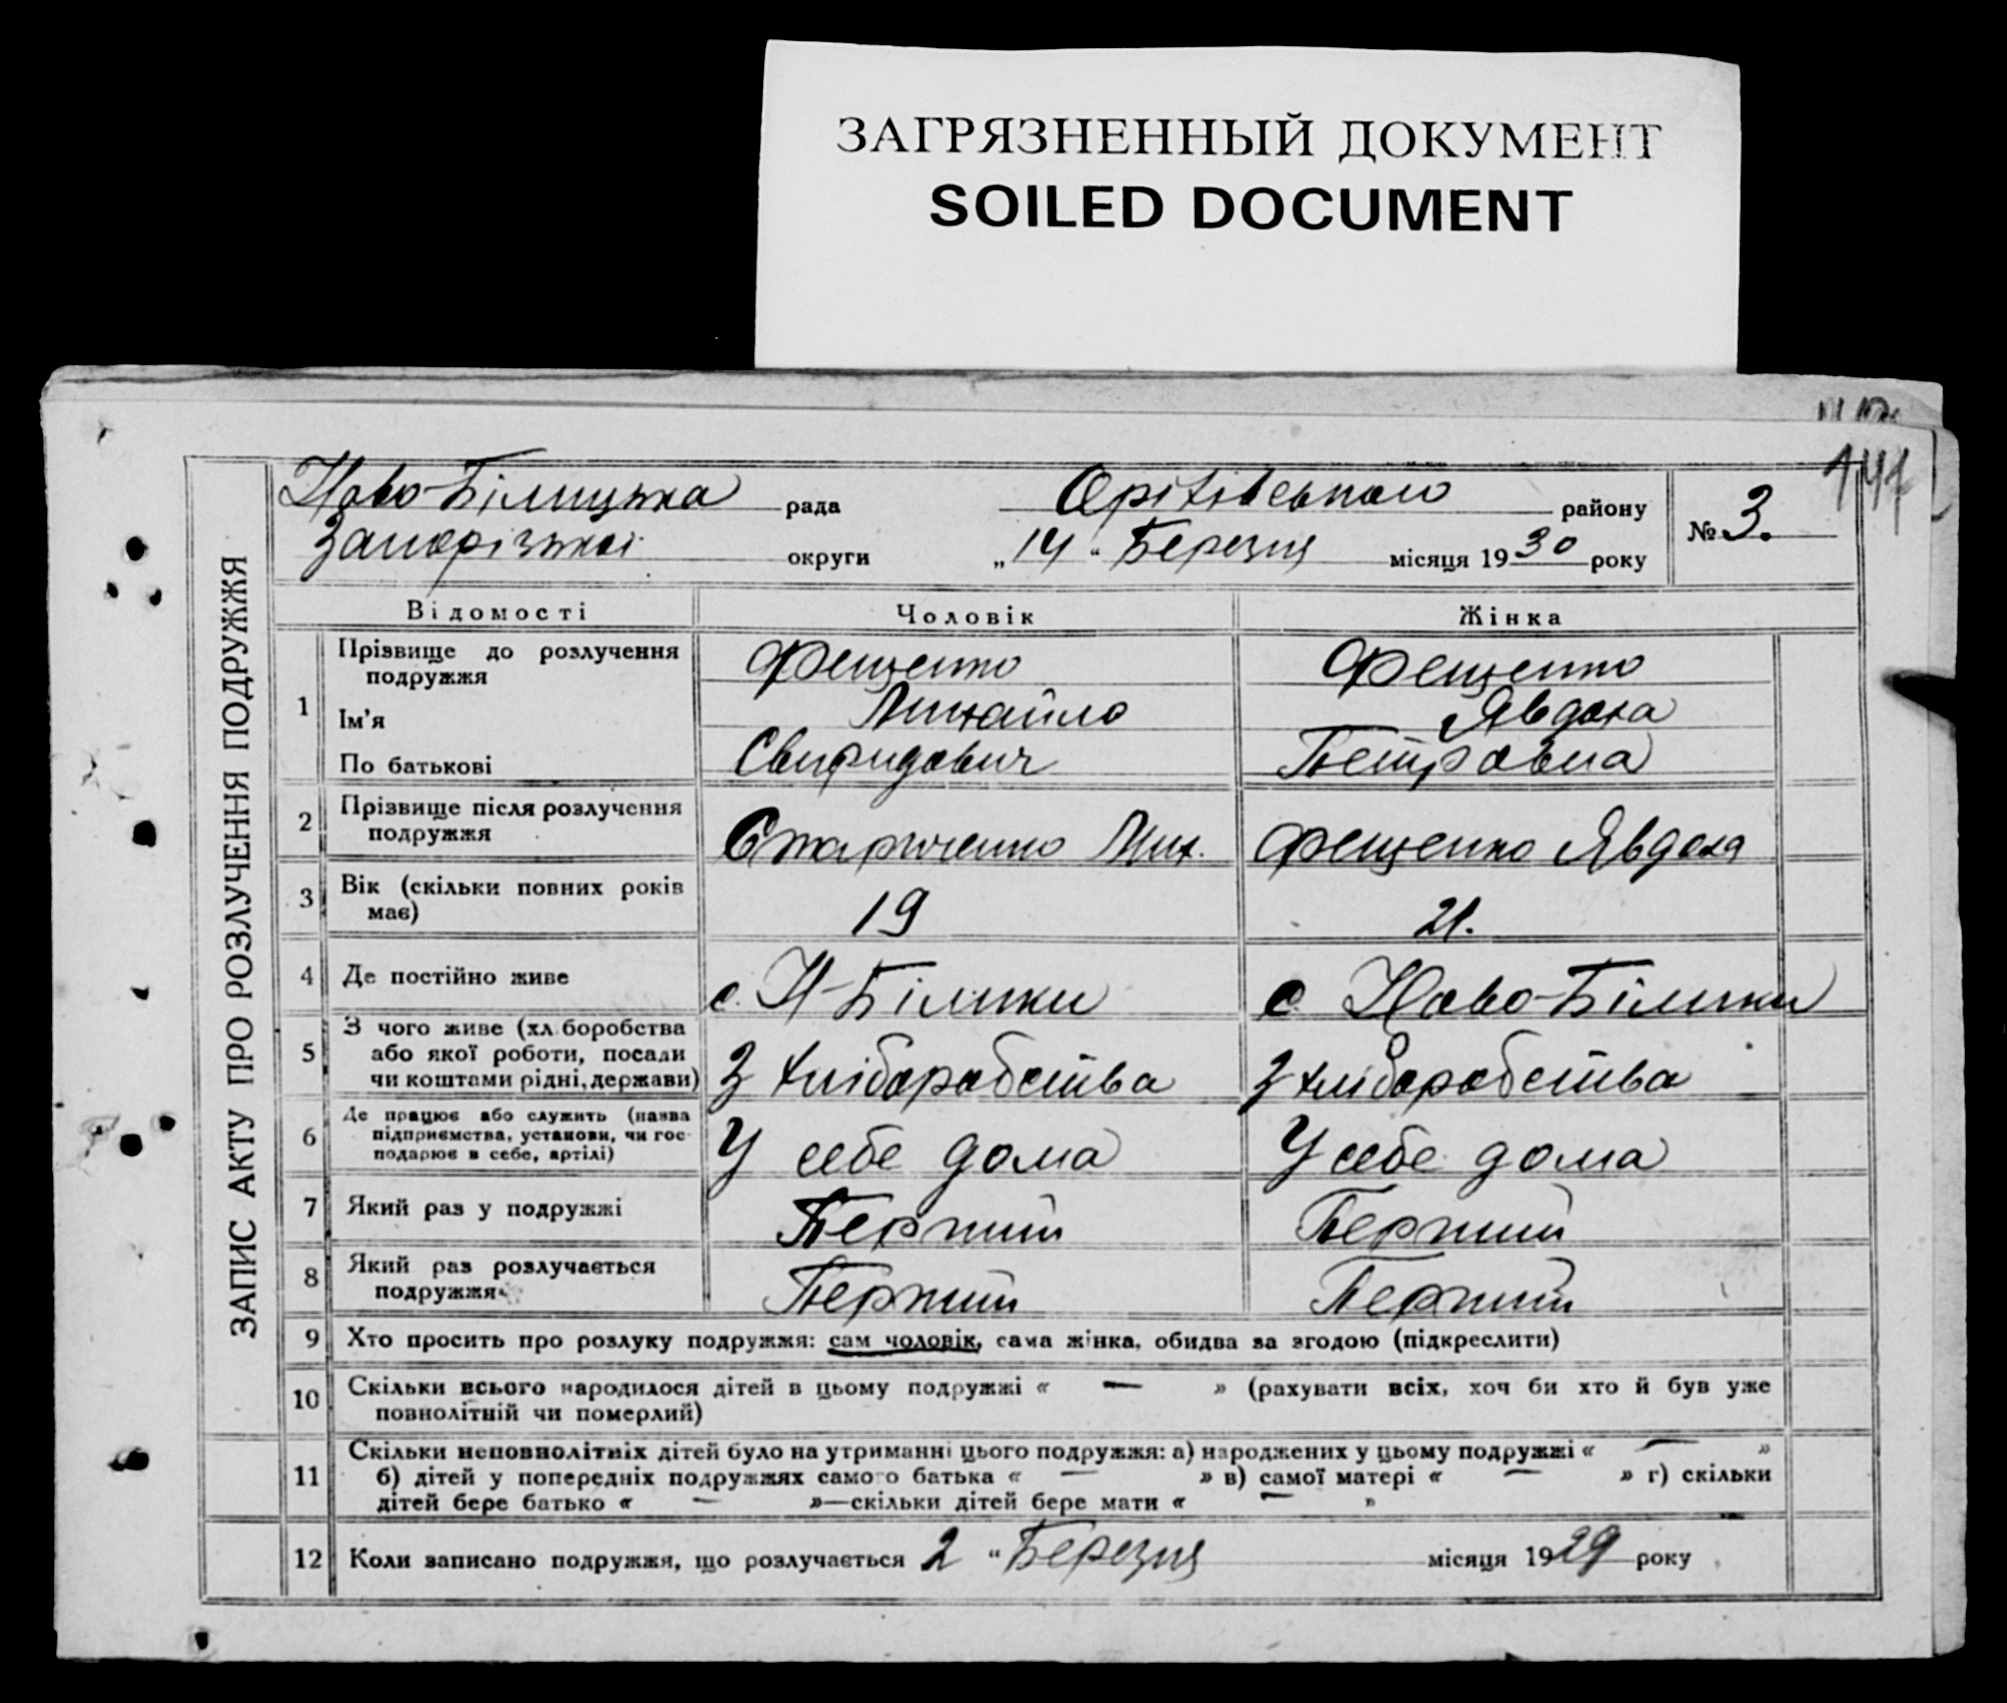 ЗАГРЯЗНЕННЫЙ ДОКУМЕНТ
SOILED DOCUMENT
ЗАПИС АКТУ ПРО РОЗЛУЧЕННЯ ПОДРУЖЖЯ
Ново-Білицька рада Оріхівського району № 3.
Запорізької округи „14“ Березня місяця 1930 року
Відомості Чоловік Жінка
1 Прізвище до розлучення подружжя Фещенко Фещенко
Ім'я Михайло Явдоха
По батькові Свиридович Петровна
2 Прізвище після розлучення подружжя Старченко Мих. Фещенко Явдоха
3 Вік (скільки повних років має) 19 21.
4 Де постійно живе с. Н-Білики с. Ново-Білики
5 З чого живе (хл.боробства або якої роботи, посади чи коштами рідні, держави) З хліборобства З хліборобства
6 Де працює або служить (назва підприємства, установи, чи господарює в себе, артілі) У себе дома У себе дома
7 Який раз у подружжі Перший Перший
8 Який раз розлучається подружжя Перший Перший
9 Хто просить про розлуку подружжя: сам чоловік, сама жінка, обидва за згодою (підкреслити)
10 Скільки всього народилося дітей в цьому подружжі « — » (рахувати всіх, хоч би хто й був уже
повнолітній чи померлий)
11 Скільки неповнолітніх дітей було на утриманні цього подружжя: а) народжених у цьому подружжі « — »
б) дітей у попередніх подружжях самого батька « — » в) самої матері « — » г) скільки
дітей бере батько « — »—скільки дітей бере мати « — »
12 Коли записано подружжя, що розлучається 2 “ Березня місяця 1929 року